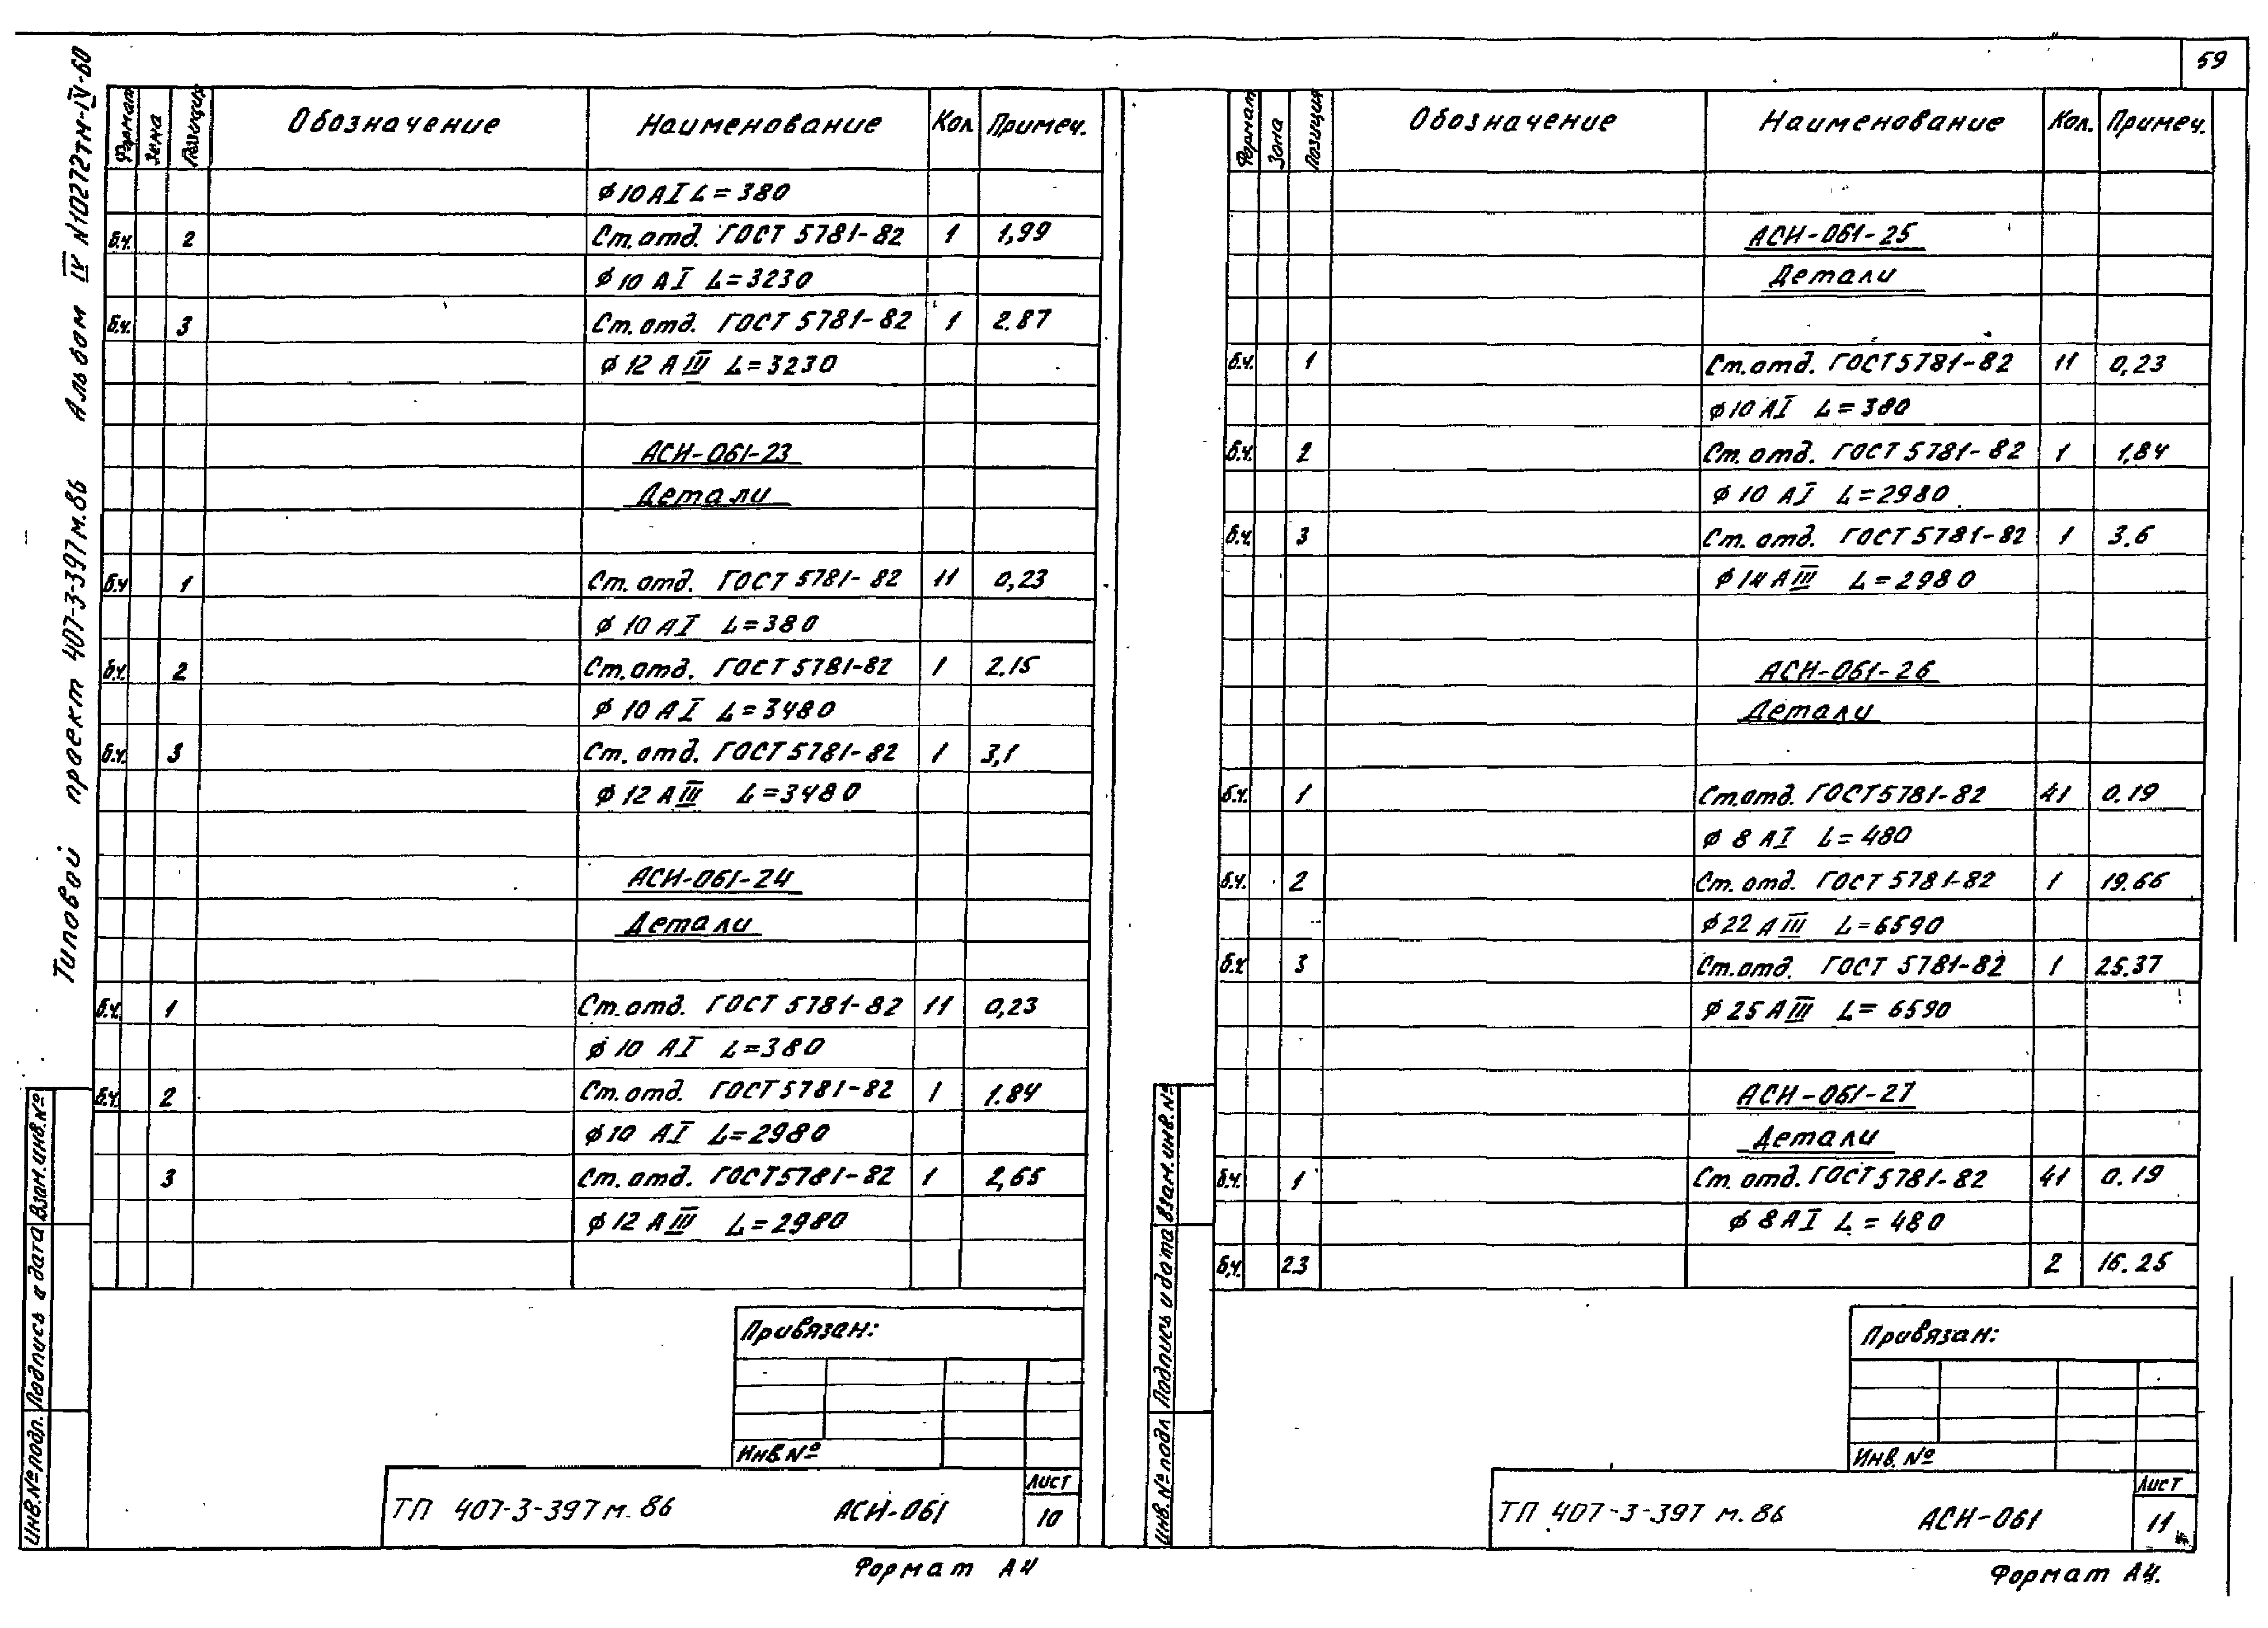 59
Типовой проект 407-3-397м.86 Альбом IV N10272тм-IV-60
Формат Зона Позиция Обозначение Наименование Кол. Примеч.
ϕ10 АI L=380
б.ч. 2 Ст. отд. ГОСТ 5781-82 1 1,99
ϕ10 АI L=3230
б.ч. 3 Ст. отд. ГОСТ 5781-82 1 2.87
ϕ12 АIII L=3230
АСИ-061-23
Детали
б.ч 1 Ст. отд. ГОСТ 5781-82 11 0,23
ϕ10 АI L=380
б.ч. 2 Ст. отд. ГОСТ 5781-82 1 2.15
ϕ10 АI L=3480
б.ч. 3 Ст. отд. ГОСТ 5781-82 1 3,1
ϕ12 АIII L=3480
АСИ-061-24
Детали
б.ч. 1 Ст. отд. ГОСТ 5781-82 11 0,23
ϕ10 АI L=380
б.ч. 2 Ст. отд. ГОСТ 5781-82 1 1.84
ϕ10 АI L=2980
3 Ст. отд. ГОСТ 5781-82 1 2,65
ϕ12 АIII L=2980
Привязан:
Инв.№
ТП 407-3-397м.86 АСИ-061 Лист
10
Формат А4
Инв.№подл. Подпись и дата Взам.инв.№
Формат Зона Позиция Обозначение Наименование Кол. Примеч.
АСИ-061-25
Детали
б.ч. 1 Ст. отд. ГОСТ 5781-82 11 0,23
ϕ10 АI L=380
б.ч. 2 Ст. отд. ГОСТ 5781-82 1 1,84
ϕ10 АI L=2980
б.ч. 3 Ст. отд. ГОСТ 5781-82 1 3.6
ϕ14 АIII L=2980
АСИ-061-26
Детали
б.ч. 1 Ст. отд. ГОСТ 5781-82 41 0.19
ϕ8 АI L=480
б.ч. 2 Ст. отд. ГОСТ 5781-82 1 19.66
ϕ22 АIII L=6590
б.ч. 3 Ст. отд. ГОСТ 5781-82 1 25.37
ϕ25 АIII L=6590
АСИ-061-27
Детали
б.ч. 1 Ст. отд. ГОСТ 5781-82 41 0.19
ϕ8 АI L=480
б.ч. 23 2 16.25
Привязан:
Инв.№
ТП 407-3-397 м.86 АСИ-061 Лист
11
Формат А4.
Инв.№подл Подпись и дата Взам.инв.№